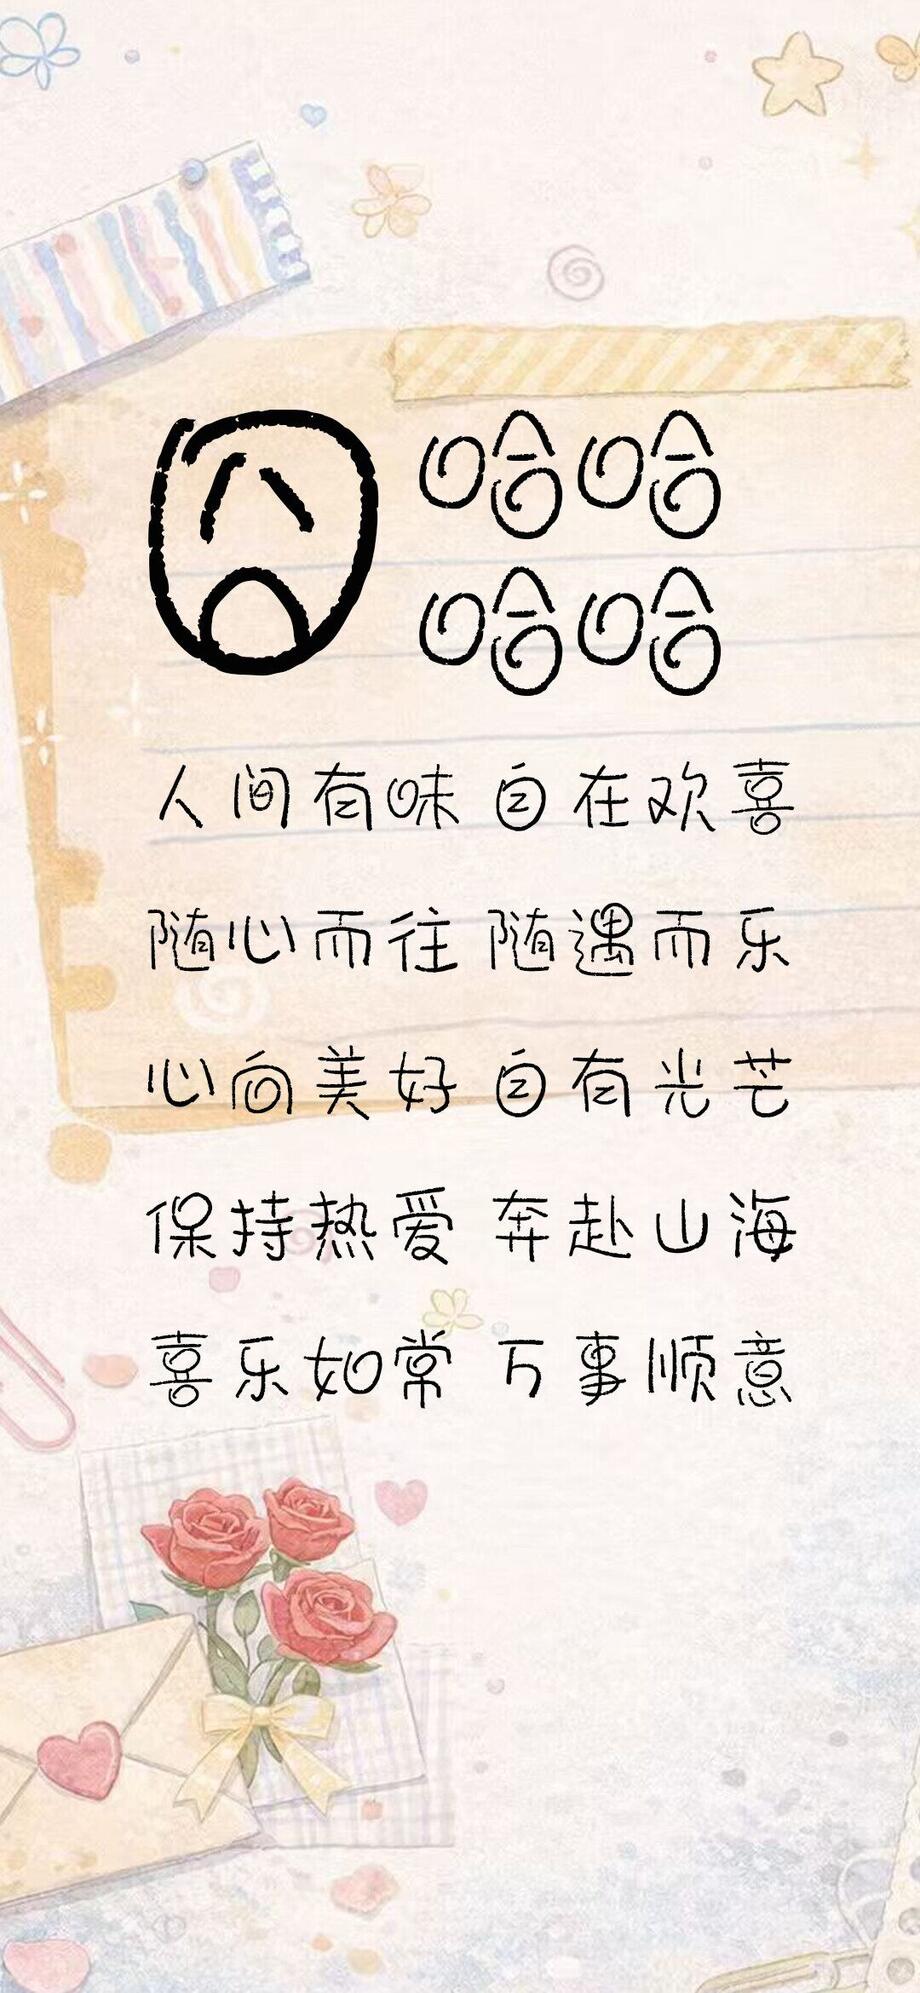 囧 哈哈
哈哈
人间有味 自在欢喜
随心而往 随遇而乐
心向美好 自有光芒
保持热爱 奔赴山海
喜乐如常 万事顺意